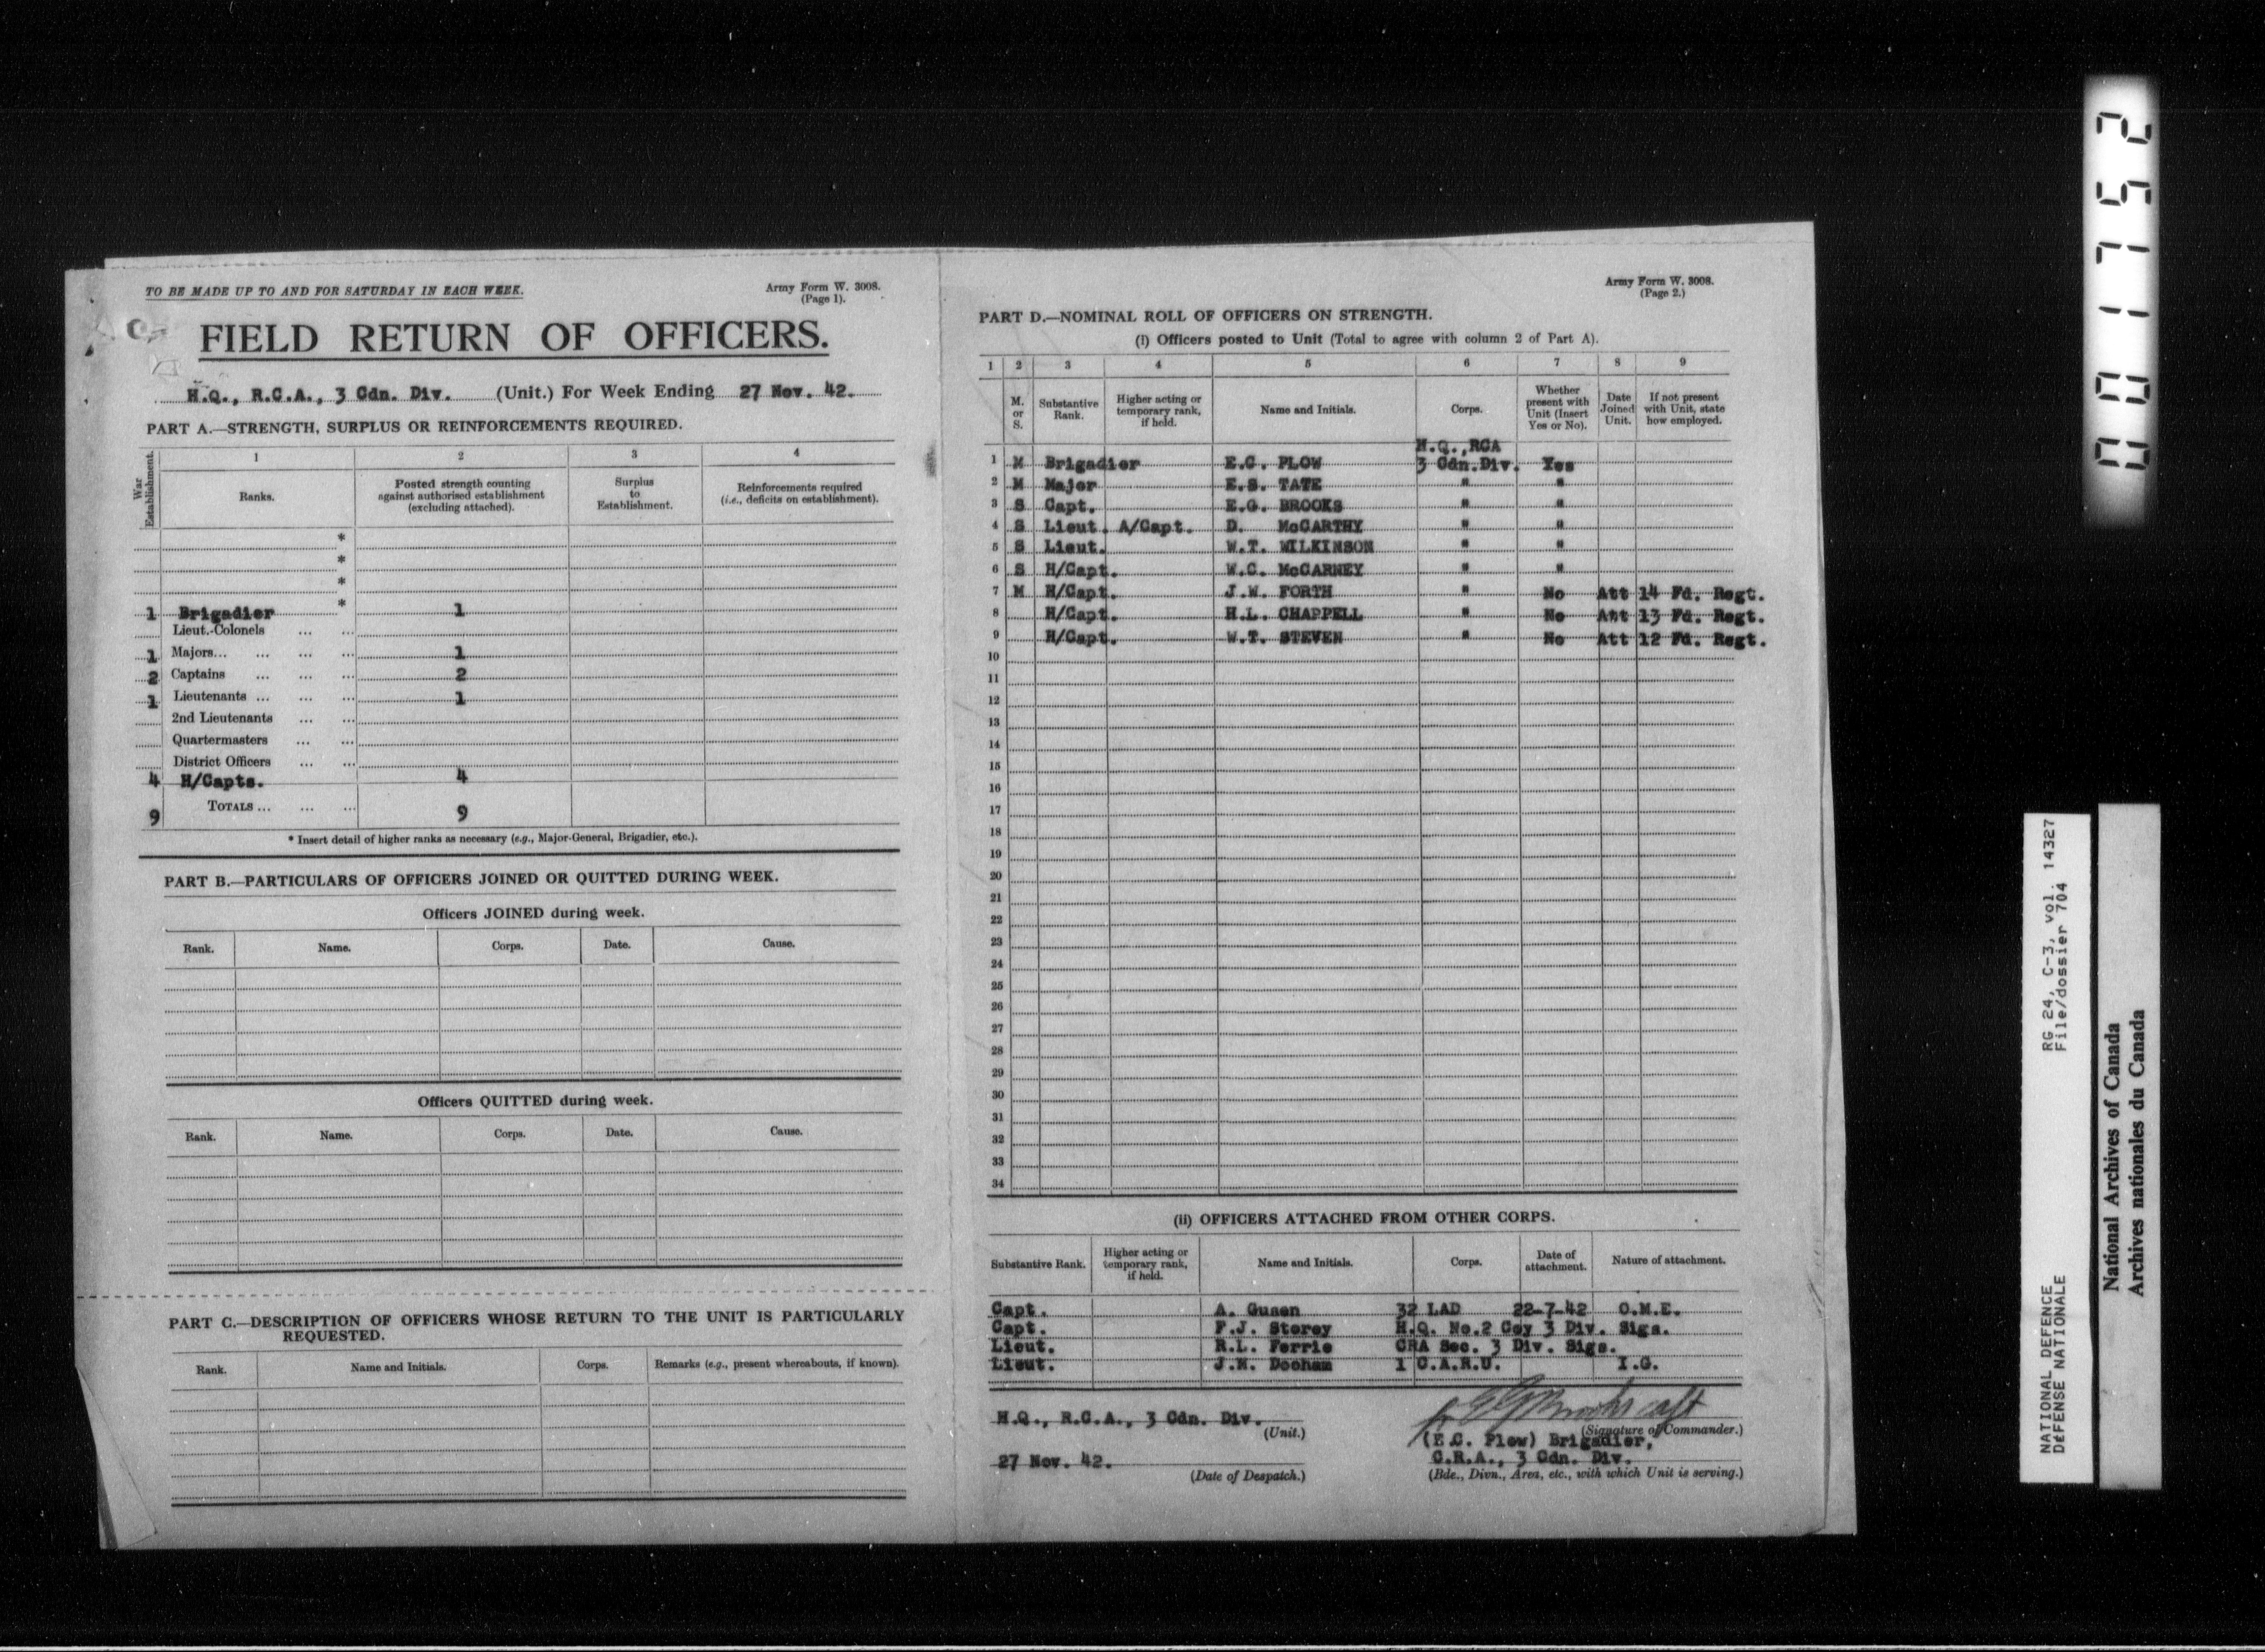 TO BE MADE UP TO AND FOR SATURDAY IN EACH WEEK.
Army Form W. 3008.
(Page 1).
FIELD RETURN OF OFFICERS.
H.Q., R.C.A., 3 Cdn. Div. (Unit.) For Week Ending 27 Nov. 42.
PART A.—STRENGTH, SURPLUS OR REINFORCEMENTS REQUIRED.
War Establishment.
1 2 3 4
Ranks.
Posted strength counting
against authorised establishment
(excluding attached).
Surplus
to
Establishment.
Reinforcements required
(i.e., deficits on establishment).
*
*
*
*
1 Brigadier 1
Lieut.-Colonels ... ...
1 Majors... ... ... ... 1
2 Captains ... ... ... 2
1 Lieutenants ... ... ... 1
2nd Lieutenants ... ...
Quartermasters ... ...
District Officers ... ...
4 H/Capts. 4
9 TOTALS ... ... ... 9
* Insert detail of higher ranks as necessary (e.g., Major-General, Brigadier, etc.).
PART B.—PARTICULARS OF OFFICERS JOINED OR QUITTED DURING WEEK.
Officers JOINED during week.
Rank. Name. Corps. Date. Cause.
Officers QUITTED during week.
Rank. Name. Corps. Date. Cause.
PART C.—DESCRIPTION OF OFFICERS WHOSE RETURN TO THE UNIT IS PARTICULARLY
REQUESTED.
Rank. Name and Initials. Corps. Remarks (e.g., present whereabouts, if known).
Army Form W. 3008.
(Page 2.)
PART D.—NOMINAL ROLL OF OFFICERS ON STRENGTH.
(i) Officers posted to Unit (Total to agree with column 2 of Part A).
1 2 3 4 5 6 7 8 9
M.
or
S.
Substantive
Rank.
Higher acting or
temporary rank,
if held.
Name and Initials.
Corps.
Whether
present with
Unit (Insert
Yes or No).
Date
Joined
Unit.
If not present
with Unit, state
how employed.
H.Q.,RCA
1 M Brigadier E.C. PLOW 3 Cdn.Div. Yes
2 M Major E.S. TATE " "
3 S Capt. E.G. BROOKS " "
4 S Lieut. A/Capt. D. McCARTHY " "
5 S Lieut. W.T. WILKINSON " "
6 S H/Capt. W.C. McCARNEY " "
7 M H/Capt. J.W. FORTH " No Att 14 Fd. Regt.
8 H/Capt. H.L. CHAPPELL " No Att 13 Fd. Regt.
9 H/Capt. W.T. STEVEN " No Att 12 Fd. Regt.
10
11
12
13
14
15
16
17
18
19
20
21
22
23
24
25
26
27
28
29
30
31
32
33
34
(ii) OFFICERS ATTACHED FROM OTHER CORPS.
Substantive Rank.
Higher acting or
temporary rank,
if held.
Name and Initials.
Corps.
Date of
attachment.
Nature of attachment.
Capt. A. Gusen 32 LAD 22-7-42 O.M.E.
Capt. F.J. Storey H.Q. No.2 Coy 3 Div. Sigs.
Lieut. R.L. Ferrie CRA Sec. 3 Div. Sigs.
Lieut. J.M. Doohan 1 C.A.R.U. I.G.
H.Q., R.C.A., 3 Cdn. Div.
(Unit.)
27 Nov. 42.
(Date of Despatch.)
E G Brooks capt
(Signature of Commander.)
(E.C. Plow) Brigadier,
C.R.A., 3 Cdn. Div.
(Bde., Divn., Area, etc., with which Unit is serving.)
001752
RG 24, C-3, vol. 14327
File/dossier 704
NATIONAL DEFENCE
DÉFENSE NATIONALE
National Archives of Canada
Archives nationales du Canada